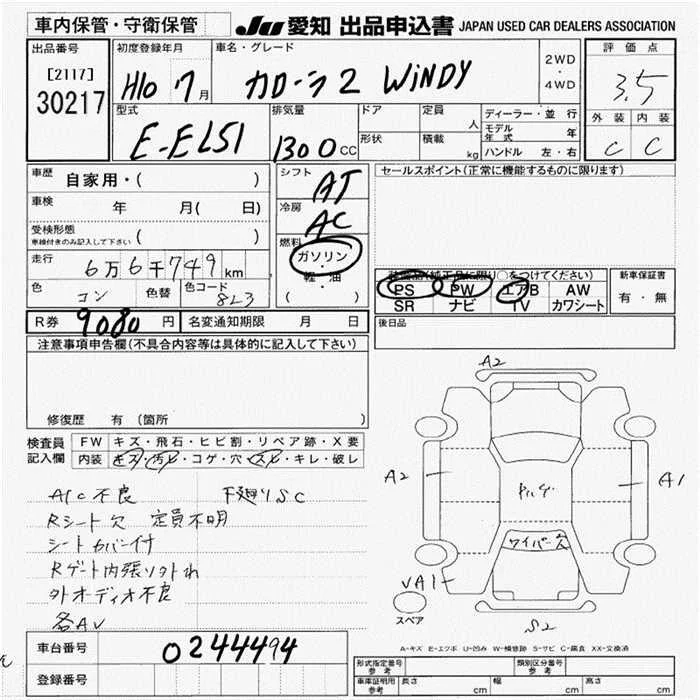 車内保管・守衛保管
JU 愛知 出品申込書 JAPAN USED CAR DEALERS ASSOCIATION
出品番号
[2117]
30217
初度登録年月
H10 7月
車名・グレード
カローラ2 WiNDY
2WD
・
4WD
評価点
3.5
外装 内装
C C
型式
E-EL51
排気量
1300CC
ドア
定員
人
形状
積載
kg
ディーラー・並行
モデル年式 年
ハンドル 左・右
車歴 自家用・( )
車検 年 月( 日)
受検形態
車検付きのみ記入して下さい ( )
走行 6万6千749km
色 コン 色替 色コード 8L3
シフト AT
冷房 AC
燃料
ガソリン
・
軽・油
( )
セールスポイント(正常に機能するものに限ります)
装備品(純正品に限り○をつけてください)
PS PW エアB AW
SR ナビ TV カワシート
新車保証書
有・無
R券 9080円 名変通知期限 月 日
後日品
注意事項申告欄(不具合内容等は具体的に記入して下さい)
修復歴 有 (箇所 )
検査員記入欄
FW キズ・飛石・ヒビ割・リペア跡・X要
内装 キズ・汚レ・コゲ・穴・スレ・キレ・破レ
A/C不良 下廻りSC
Rシート欠 定員不明
シートカバー付
Rゲート内張り外れ
外オーディオ不良
各AV
A2
A2
A1
ワイパー欠
VA1
スペア
S2
A-キズ E-エクボ U-凹み W-補修跡 S-サビ C-腐食 XX-交換済
車台番号 0244494
登録番号
形式指定番号 参考
類別区分番号 参考
車庫証明用 参考 長さ cm 幅 cm 高さ cm